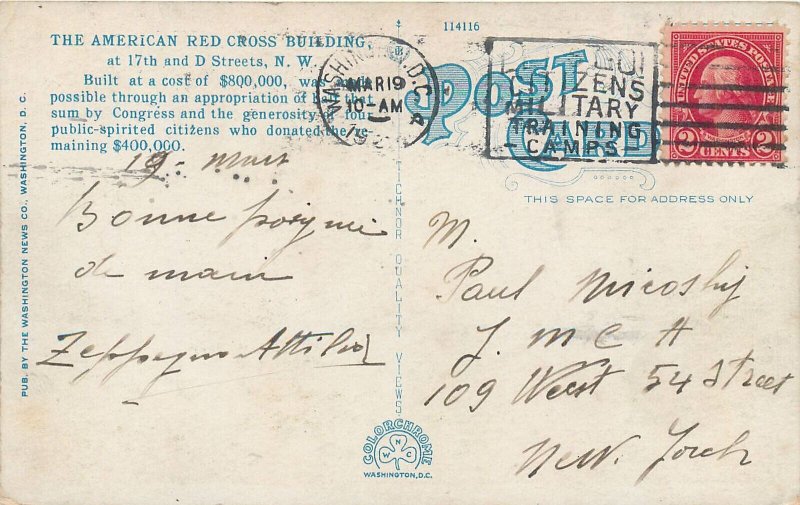 THE AMERICAN RED CROSS BUILDING,
at 17th and D Streets, N. W.
Built at a cost of $800,000, was
possible through an appropriation of
sum by Congress and the generosity of four
public-spirited citizens who donated the re-
maining $400,000.
114116
WASHINGTON, D.C.
MAR 19
10-AM
POST CARD
CITIZENS
MILITARY
TRAINING
CAMPS
UNITED STATES POSTAGE
2 CENTS 2
THIS SPACE FOR ADDRESS ONLY
PUB. BY THE WASHINGTON NEWS CO., WASHINGTON, D. C.
TICHNOR QUALITY VIEWS
19- mars
Bonne poignée
de main
Attilio
M.
Paul
Y M C A
109 West 54 Street
New. York
COLORCHROME
W N C
WASHINGTON, D.C.